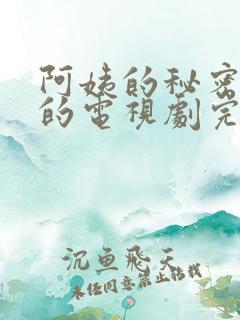 阿姨的秘密
的电视剧完
沉鱼飞天
未经同意禁止转载